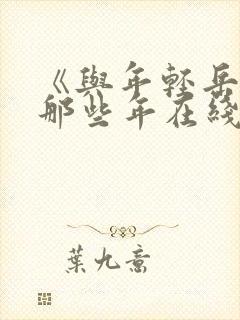 《與年輕岳
那些年在綫
葉九意